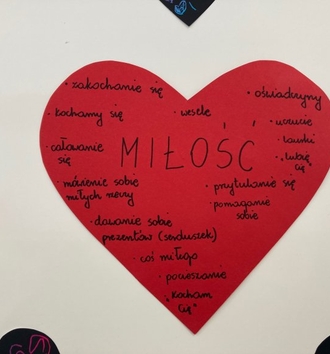 · zakochanie się
· kochamy się
· wesele
· oświadczyny
· uczucie
· całowanie
się
MIŁOŚĆ
· lubię
cię
· mówienie sobie
miłych rzeczy
· przytulanie się
· pomaganie
sobie
· dawanie sobie
prezentów (serduszek)
· coś miłego
·
"Kocham
Cię"